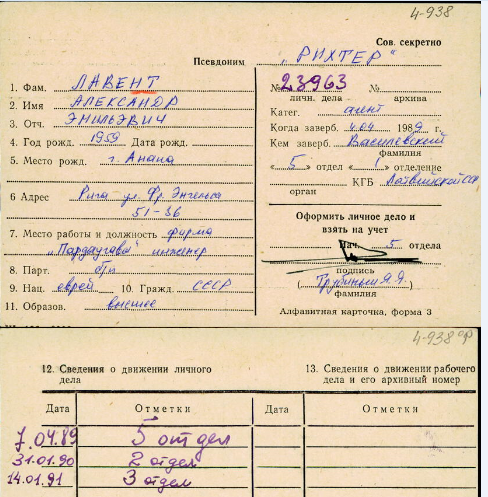 4-938
Сов. секретно
Псевдоним „РИХТЕР"
1. Фам. ЛАВЕНТ
2. Имя АЛЕКСАНДР
3. Отч. ЭМИЛЬЕВИЧ
4. Год рожд. 1959 Дата рожд.
5. Место рожд. г. Анапа
6 Адрес Рига ул Фр. Энгельса
51-36
7. Место работы и должность фирма
„Пардаугава" инженер
8. Парт. б/п
9. Нац. еврей 10. Гражд. СССР
11. Образов. высшее
№ 23963 №
личн. дела архива
Катег. агент
Когда заверб. 4.04 1989 г.
Кем заверб. Василевский
фамилия
«5» отдел «1» отделение
КГБ Латвийской ССР
орган
Оформить личное дело и
взять на учет
Нач. 5 отдела
подпись
( Трубиньш Я.Я. )
фамилия
Алфавитная карточка, форма 3
4-938 ор
12. Сведения о движении личного
дела
13. Сведения о движении рабочего
дела и его архивный номер
Дата Отметки Дата Отметки
7.04.89 5 отдел
31.01.90 2 отдел
14.01.91 3 отдел